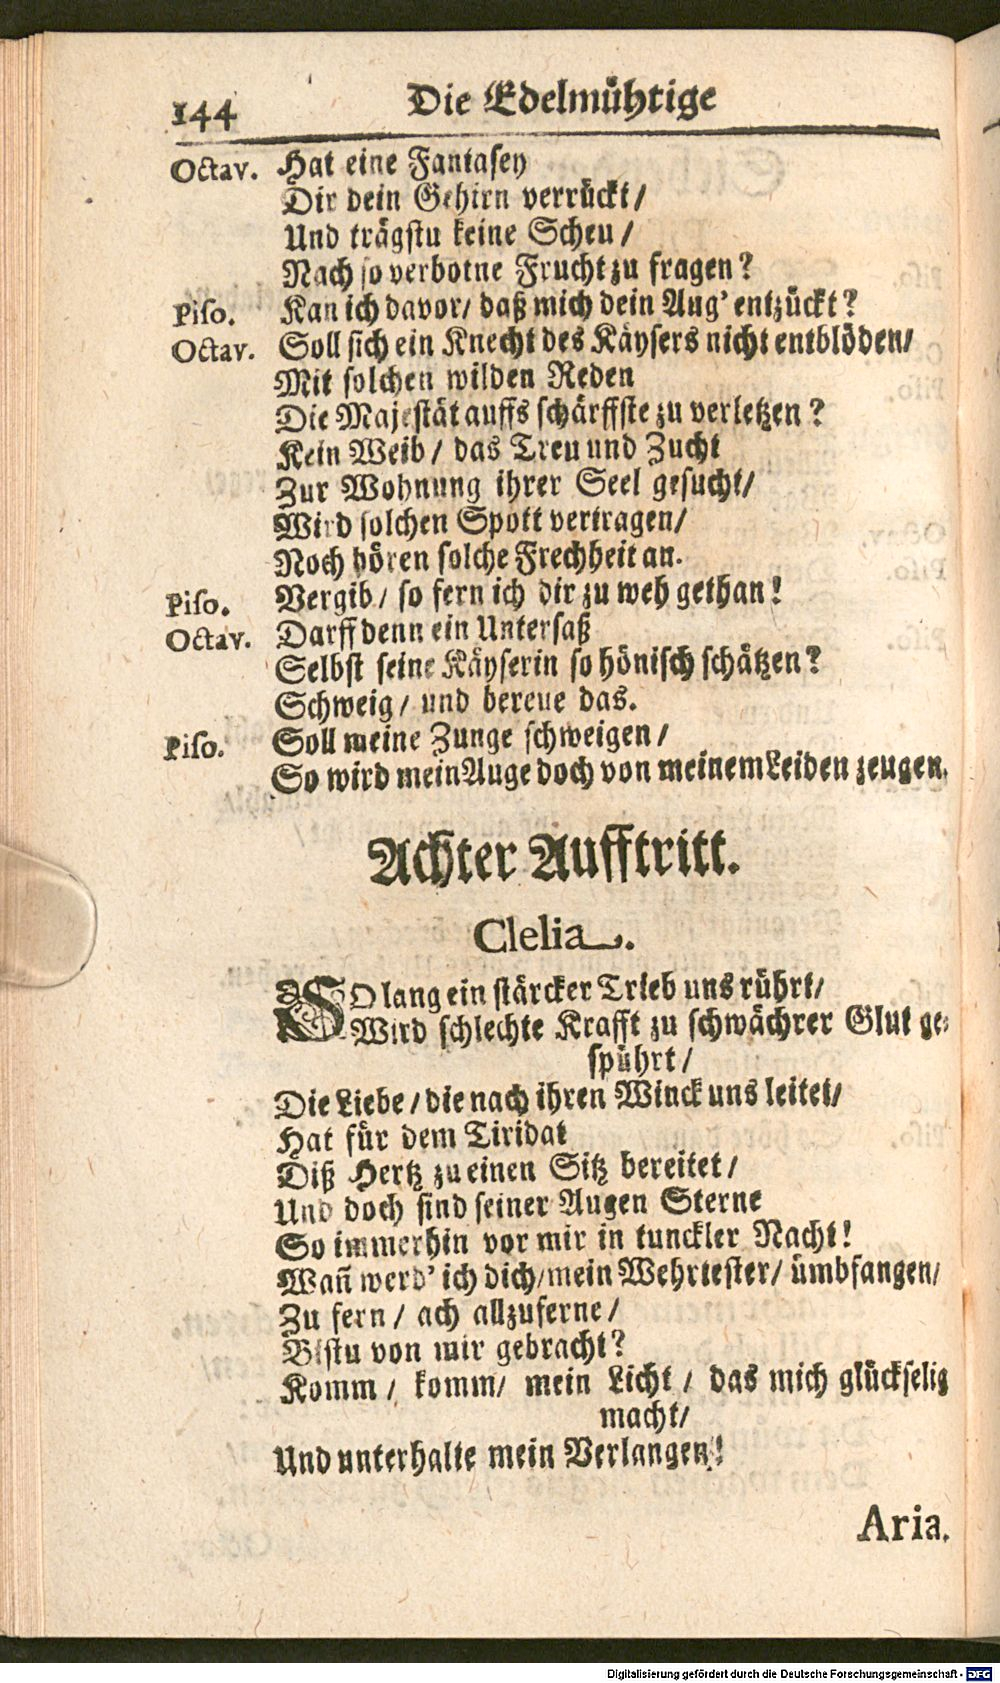 144 Die Edelmühtige
Octav. Hat eine Fantasey
Dir dein Gehirn verrückt/
Und trägstu keine Scheu/
Nach so verbotne Frucht zu fragen?
Piso. Kan ich davor/ daß mich dein Aug' entzückt?
Octav. Soll sich ein Knecht des Käysers nicht entblöden/
Mit solchen wilden Reden
Die Majestät auffs schärffste zu verletzen?
Kein Weib/ das Treu und Zucht
Zur Wohnung ihrer Seel gesucht/
Wird solchen Spott vertragen/
Noch hören solche Frechheit an.
Piso. Vergib/ so fern ich dir zu weh gethan!
Octav. Darff denn ein Untersaß
Selbst seine Käyserin so hönisch schätzen?
Schweig/ und bereue das.
Piso. Soll meine Zunge schweigen/
So wird mein Auge doch von meinem Leiden zeugen.
Achter Aufftritt.
Clelia.
SO lang ein stärcker Trieb uns rührt/
Wird schlechte Krafft zu schwächrer Glut ge-
spührt/
Die Liebe/ die nach ihren Winck uns leitet/
Hat für dem Tiridat
Diß Hertz zu einen Sitz bereitet/
Und doch sind seiner Augen Sterne
So immerhin vor mir in tunckler Nacht!
Wañ werd' ich dich/ mein Wehrtester/ ümbfangen/
Zu fern/ ach allzuferne/
Bistu von mir gebracht?
Komm/ komm/ mein Licht/ das mich glückselig
macht/
Und unterhalte mein Verlangen!
Aria.
Digitalisierung gefördert durch die Deutsche Forschungsgemeinschaft - DFG